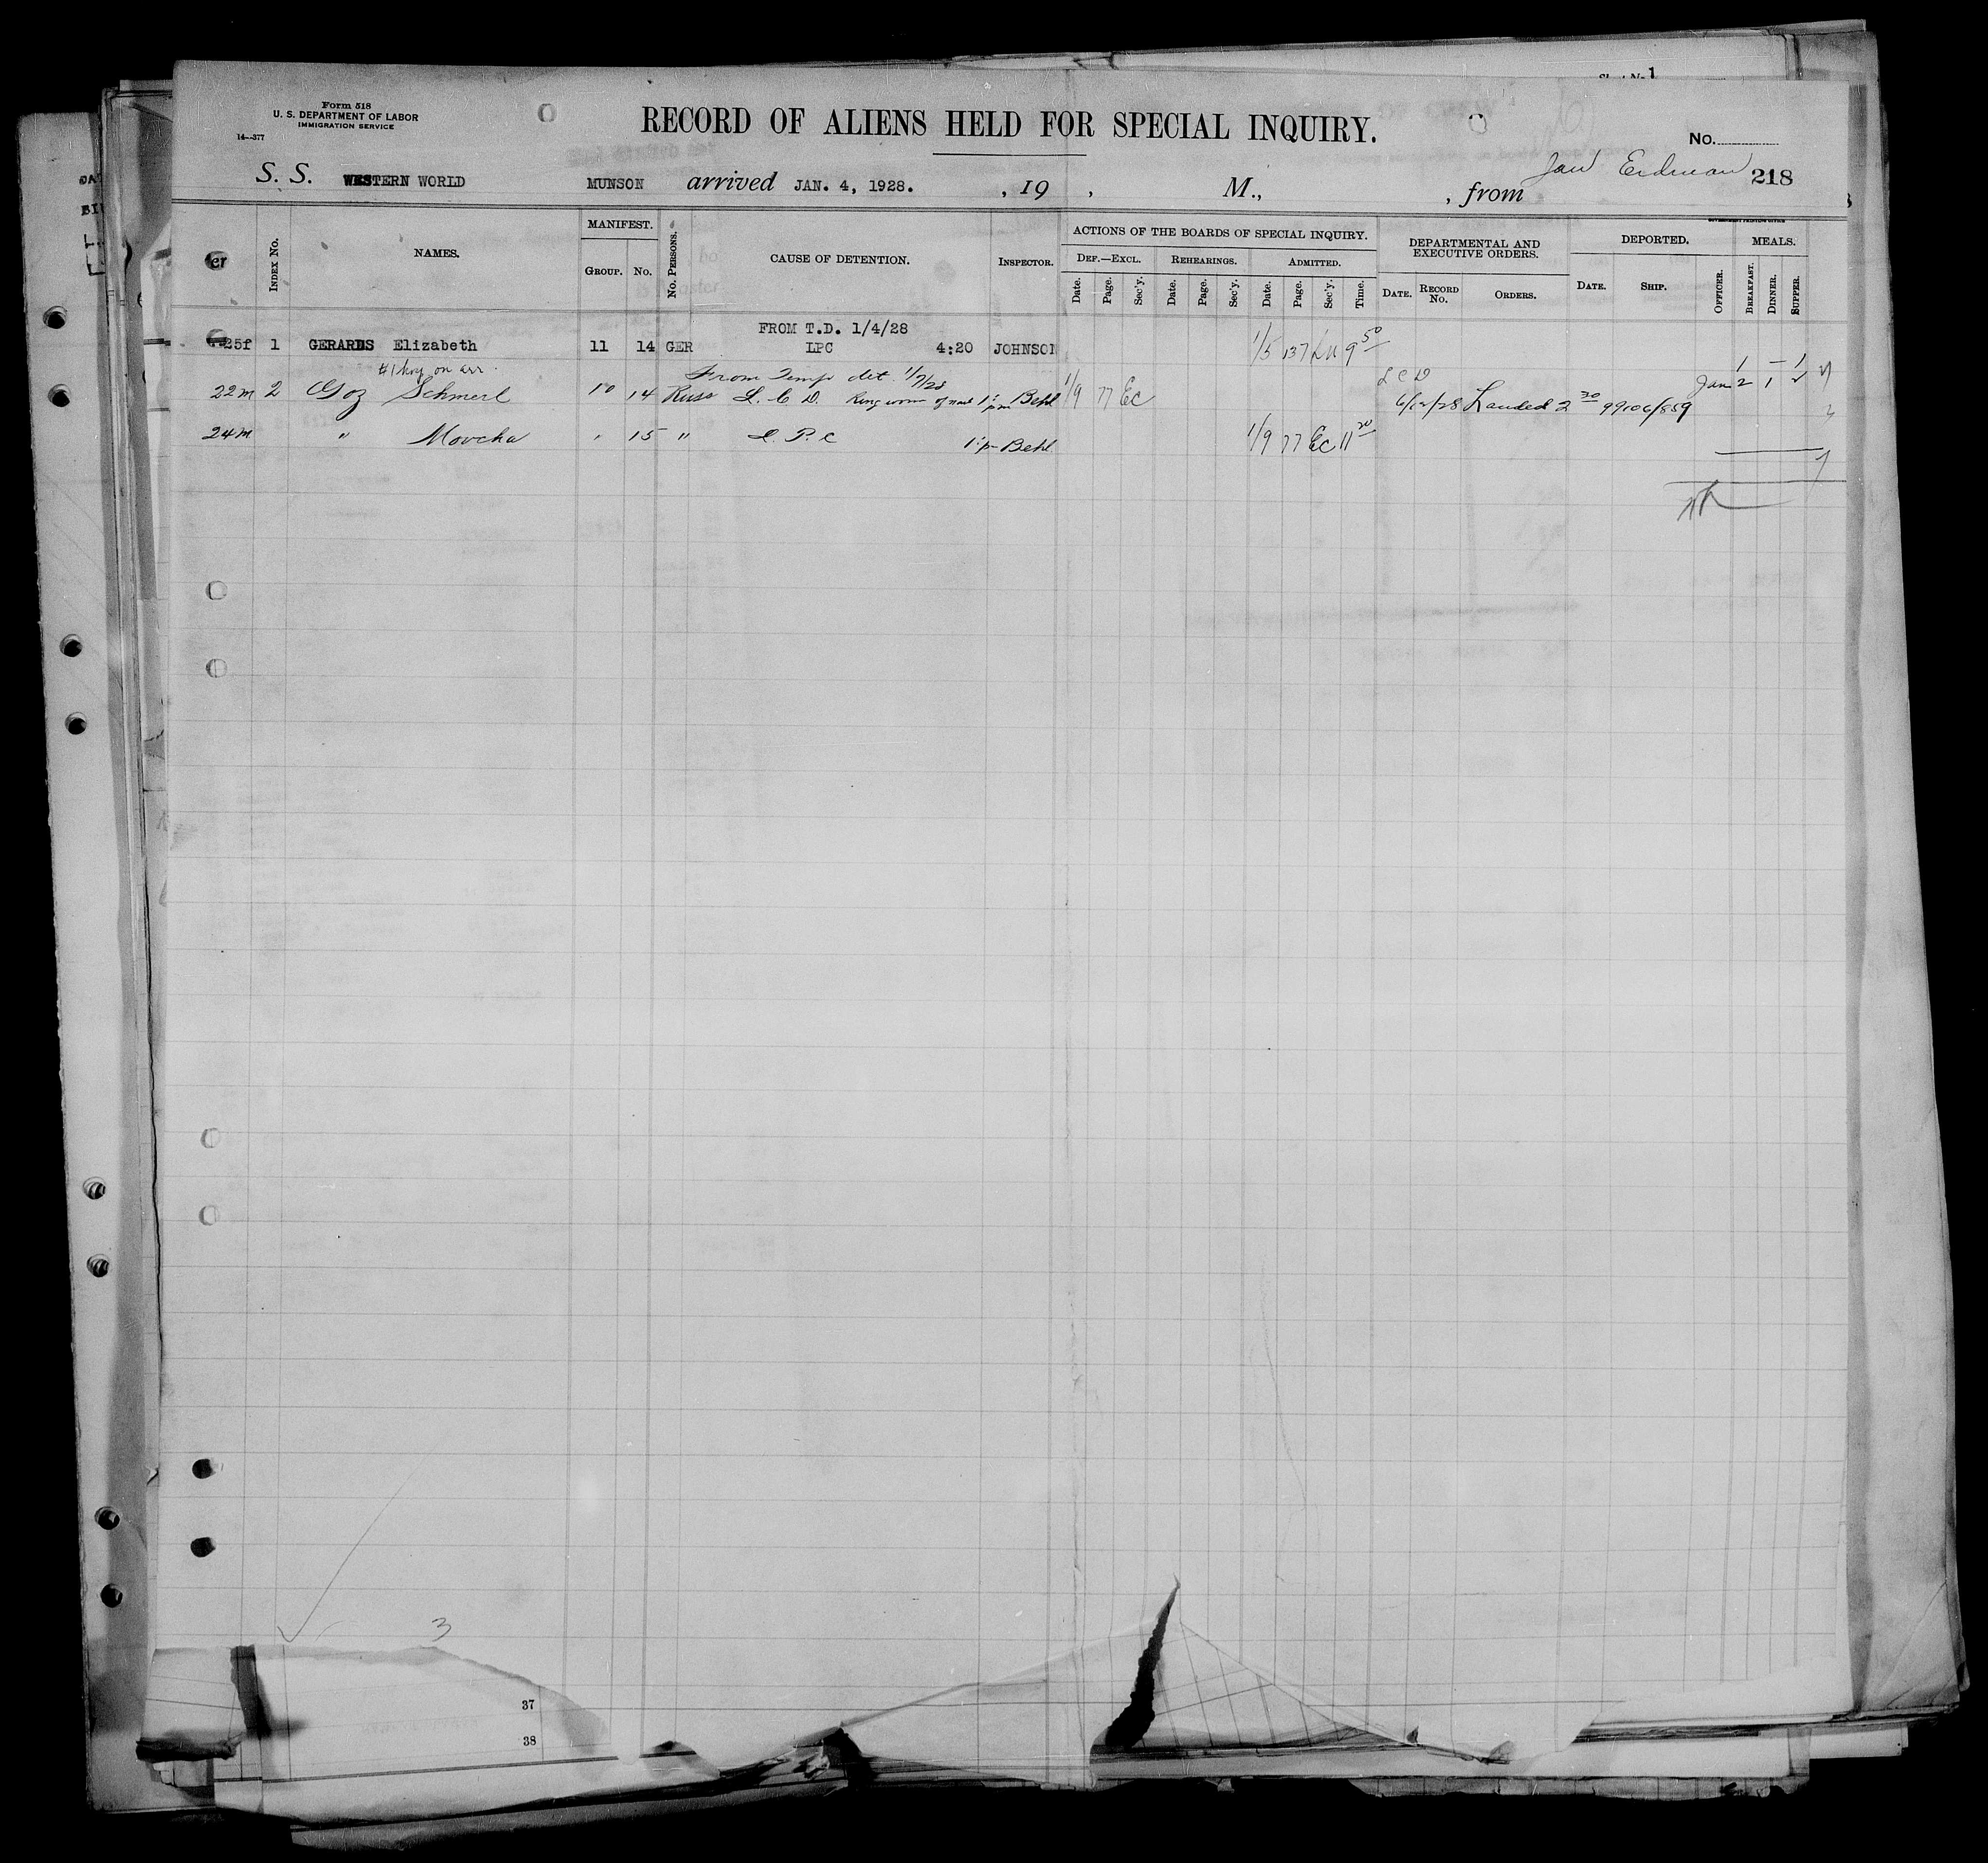 Form 518
U. S. DEPARTMENT OF LABOR
IMMIGRATION SERVICE
14—377
RECORD OF ALIENS HELD FOR SPECIAL INQUIRY.
No.
Jan Erdman 218
S. S. WESTERN WORLD MUNSON arrived JAN. 4, 1928. , 19 , M., , from
INDEX NO. NAMES. MANIFEST. GROUP. NO. NO. PERSONS. CAUSE OF DETENTION. INSPECTOR. ACTIONS OF THE BOARDS OF SPECIAL INQUIRY. DEPARTMENTAL AND EXECUTIVE ORDERS. DEPORTED. MEALS.
DEF.—EXCL. REHEARINGS. ADMITTED.
Date. Page. Sec'y. Date. Page. Sec'y. Date. Page. Sec'y. Time. DATE. RECORD NO. ORDERS. DATE. SHIP. OFFICER. BREAKFAST. DINNER. SUPPER.
FROM T.D. 1/4/28
25f 1 GERARDS Elizabeth 11 14 GER LPC 4:20 JOHNSON 1/5 137 9 50
on arr. From Temp det. 1/7/28 L C D
22m 2 Goz Schmerl 10 14 Russ L. C. D. Ring worm of nail 1: pm Behl 1/9 77 Ec 6/12/28 Landed 2 30 99106/859 Jan 2 1 2
24m " Movcha " 15 " L. P. C 1: p Behl 1/9 77 Ec 11 20
3
37
38